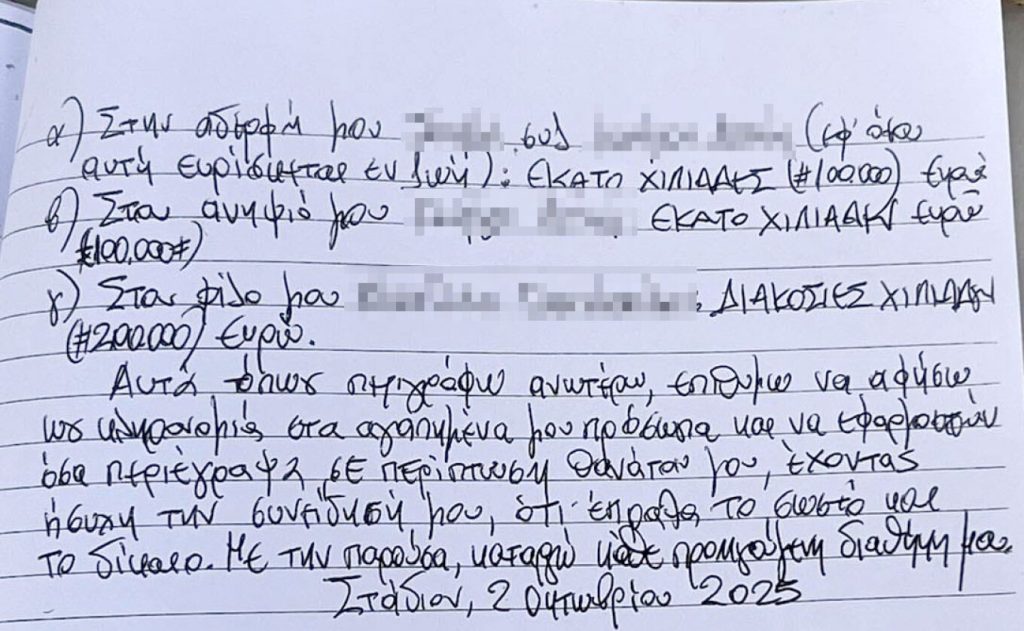 α) Στην αδερφή μου συζ. (εφ' όσον
αυτή ευρίσκεται εν ζωή): ΕΚΑΤΟ ΧΙΛΙΑΔΕΣ (#100.000) Ευρώ
β) Στον ανηψιό μου ΕΚΑΤΟ ΧΙΛΙΑΔΕΣ Ευρώ
(#100.000#)
γ) Στον φίλο μου : ΔΙΑΚΟΣΙΕΣ ΧΙΛΙΑΔΕΣ
(#200.000) Ευρώ.
Αυτά όπως περιγράφω ανωτέρω, επιθυμώ να αφήσω
ως κληρονομιά στα αγαπημένα μου πρόσωπα και να εφαρμοστούν
όσα περιέγραψα, σε περίπτωση θανάτου μου, έχοντας
ήσυχη την συνείδησή μου, ότι έπραξα το σωστό και
το δίκαιο. Με την παρούσα, καταργώ κάθε προηγούμενη διαθήκη μου.
Στάδιον, 2 Οκτωβρίου 2025